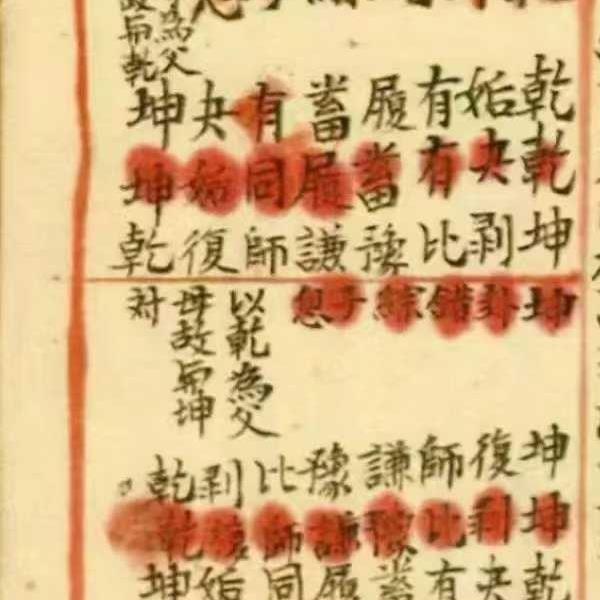 為父
乾
乾姤有履畜有夬坤
乾夬有畜履同姤坤
坤剥比豫謙師復乾
坤卦錯綜子息
以乾為父
母故 坤
対
坤復師謙豫比剥乾
坤剥比豫謙師復乾
乾夬有畜履同姤坤